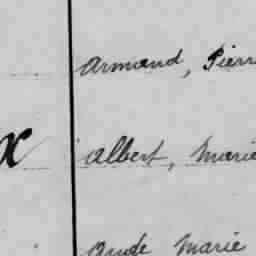 Armand, Pierr
x Albert, Marie
Aude Marie